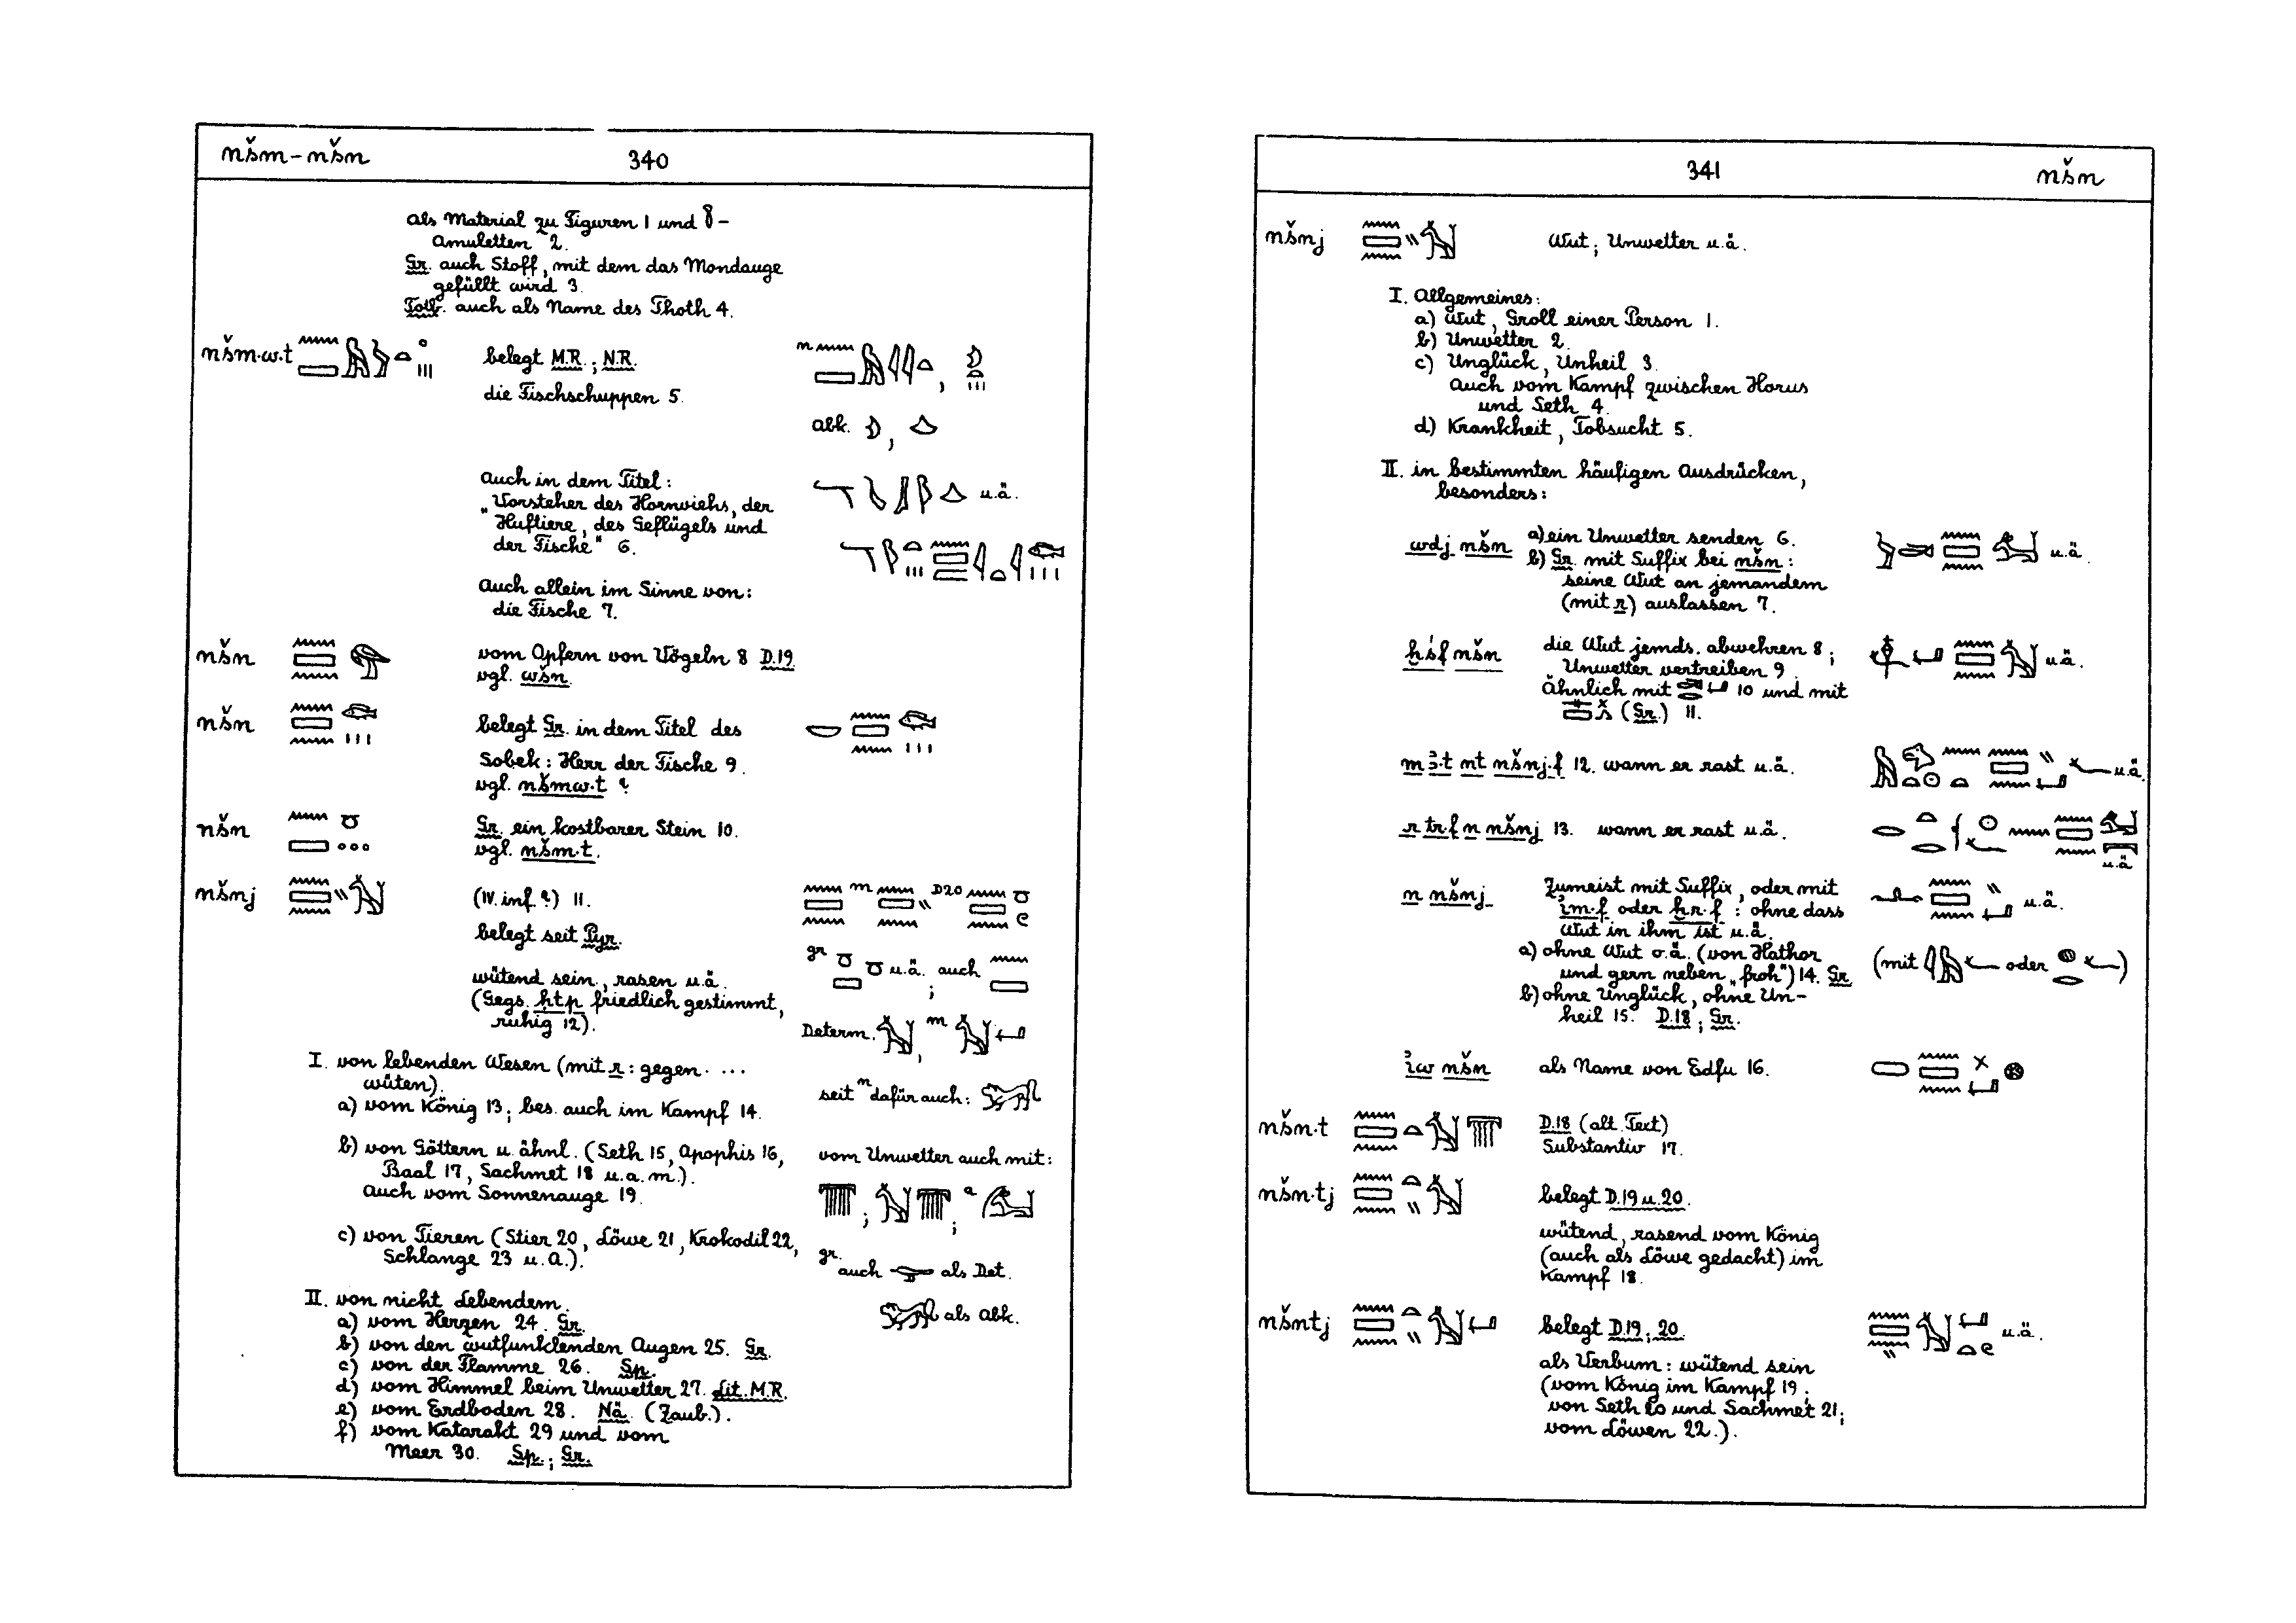 nšm – nšn 340
als Material zu Figuren 1 und 𓎬 –
Amuletten 2.
Gr. auch Stoff, mit dem das Mondauge
gefüllt wird 3.
Totb. auch als Name des Thoth 4.
nšm·w·t belegt M.R.; N.R.
die Fischschuppen 5.
abk.
auch in dem Titel:
„Vorsteher des Hornviehs, der u.ä.
Huftiere, des Geflügels und
der Fische" 6.
Auch allein im Sinne von:
die Fische 7.
nšn vom Opfern von Vögeln 8 D.19
vgl. wšn.
nšn belegt Gr. in dem Titel des
Sobek: Herr der Fische 9.
vgl. nšmw·t ?
nšn Gr. ein kostbarer Stein 10.
vgl. nšm·t.
nšnj (IV. inf ?) 11. m D20
belegt seit Pyr.
gr u.ä. ; auch
wütend sein, rasen u.ä.
(Gegs. ḥtp friedlich gestimmt,
ruhig 12).
Determ. , m
I. von lebenden Wesen (mit r: gegen ...
wüten).
seit m dafür auch:
a) vom König 13; bes. auch im Kampf 14.
b) von Göttern u. ähnl. (Seth 15, Apophis 16,
Baal 17, Sachmet 18 u.a.m.).
auch vom Sonnenauge 19.
vom Unwetter auch mit:
c) von Tieren (Stier 20, Löwe 21, Krokodil 22,
Schlange 23 u.a.).
gr. auch als Det.
II. von nicht Lebendem.
als Abk.
a) vom Herzen 24. Gr.
b) von den wutfunklenden Augen 25. Gr.
c) von der Flamme 26. Sp.
d) vom Himmel beim Unwetter 27. Lit. M.R.
e) vom Erdboden 28. Nä. (Zaub.).
f) vom Katarakt 29 und vom
Meer 30. Sp.; Gr.
341 nšn
nšnj Wut; Unwetter u.ä.
I. Allgemeines:
a) Wut, Groll einer Person 1.
b) Unwetter 2.
c) Unglück, Unheil 3.
auch vom Kampf zwischen Horus
und Seth 4.
d) Krankheit, Tobsucht 5.
II. in bestimmten häufigen Ausdrücken,
besonders:
wdj nšn a) ein Unwetter senden 6. u.ä.
b) Gr. mit Suffix bei nšn:
seine Wut an jemandem
(mit r) auslassen 7.
ḫśf nšn die Wut jemds. abwehren 8; u.ä.
Unwetter vertreiben 9.
Ähnlich mit 10 und mit
(Gr.) 11.
m ꜣ·t nt nšnj·f 12. wann er rast u.ä. u.ä.
r tr·f n nšnj 13. wann er rast u.ä. u.ä.
n nšnj Zumeist mit Suffix, oder mit u.ä.
im·f oder ḫr·f: ohne dass
Wut in ihm ist u.ä.
a) ohne Wut o.ä. (von Hathor (mit oder )
und gern neben „froh") 14. Gr.
b) ohne Unglück, ohne Un-
heil 15. D.18; Gr.
iw nšn als Name von Edfu 16.
nšn·t D.18 (alt. Text)
Substantiv 17.
nšn·tj belegt D.19 u. 20.
wütend, rasend vom König
(auch als Löwe gedacht) im
Kampf 18.
nšntj belegt D.19; 20. u.ä.
als Verbum: wütend sein
(vom König im Kampf 19;
von Seth 20 und Sachmet 21;
vom Löwen 22.).